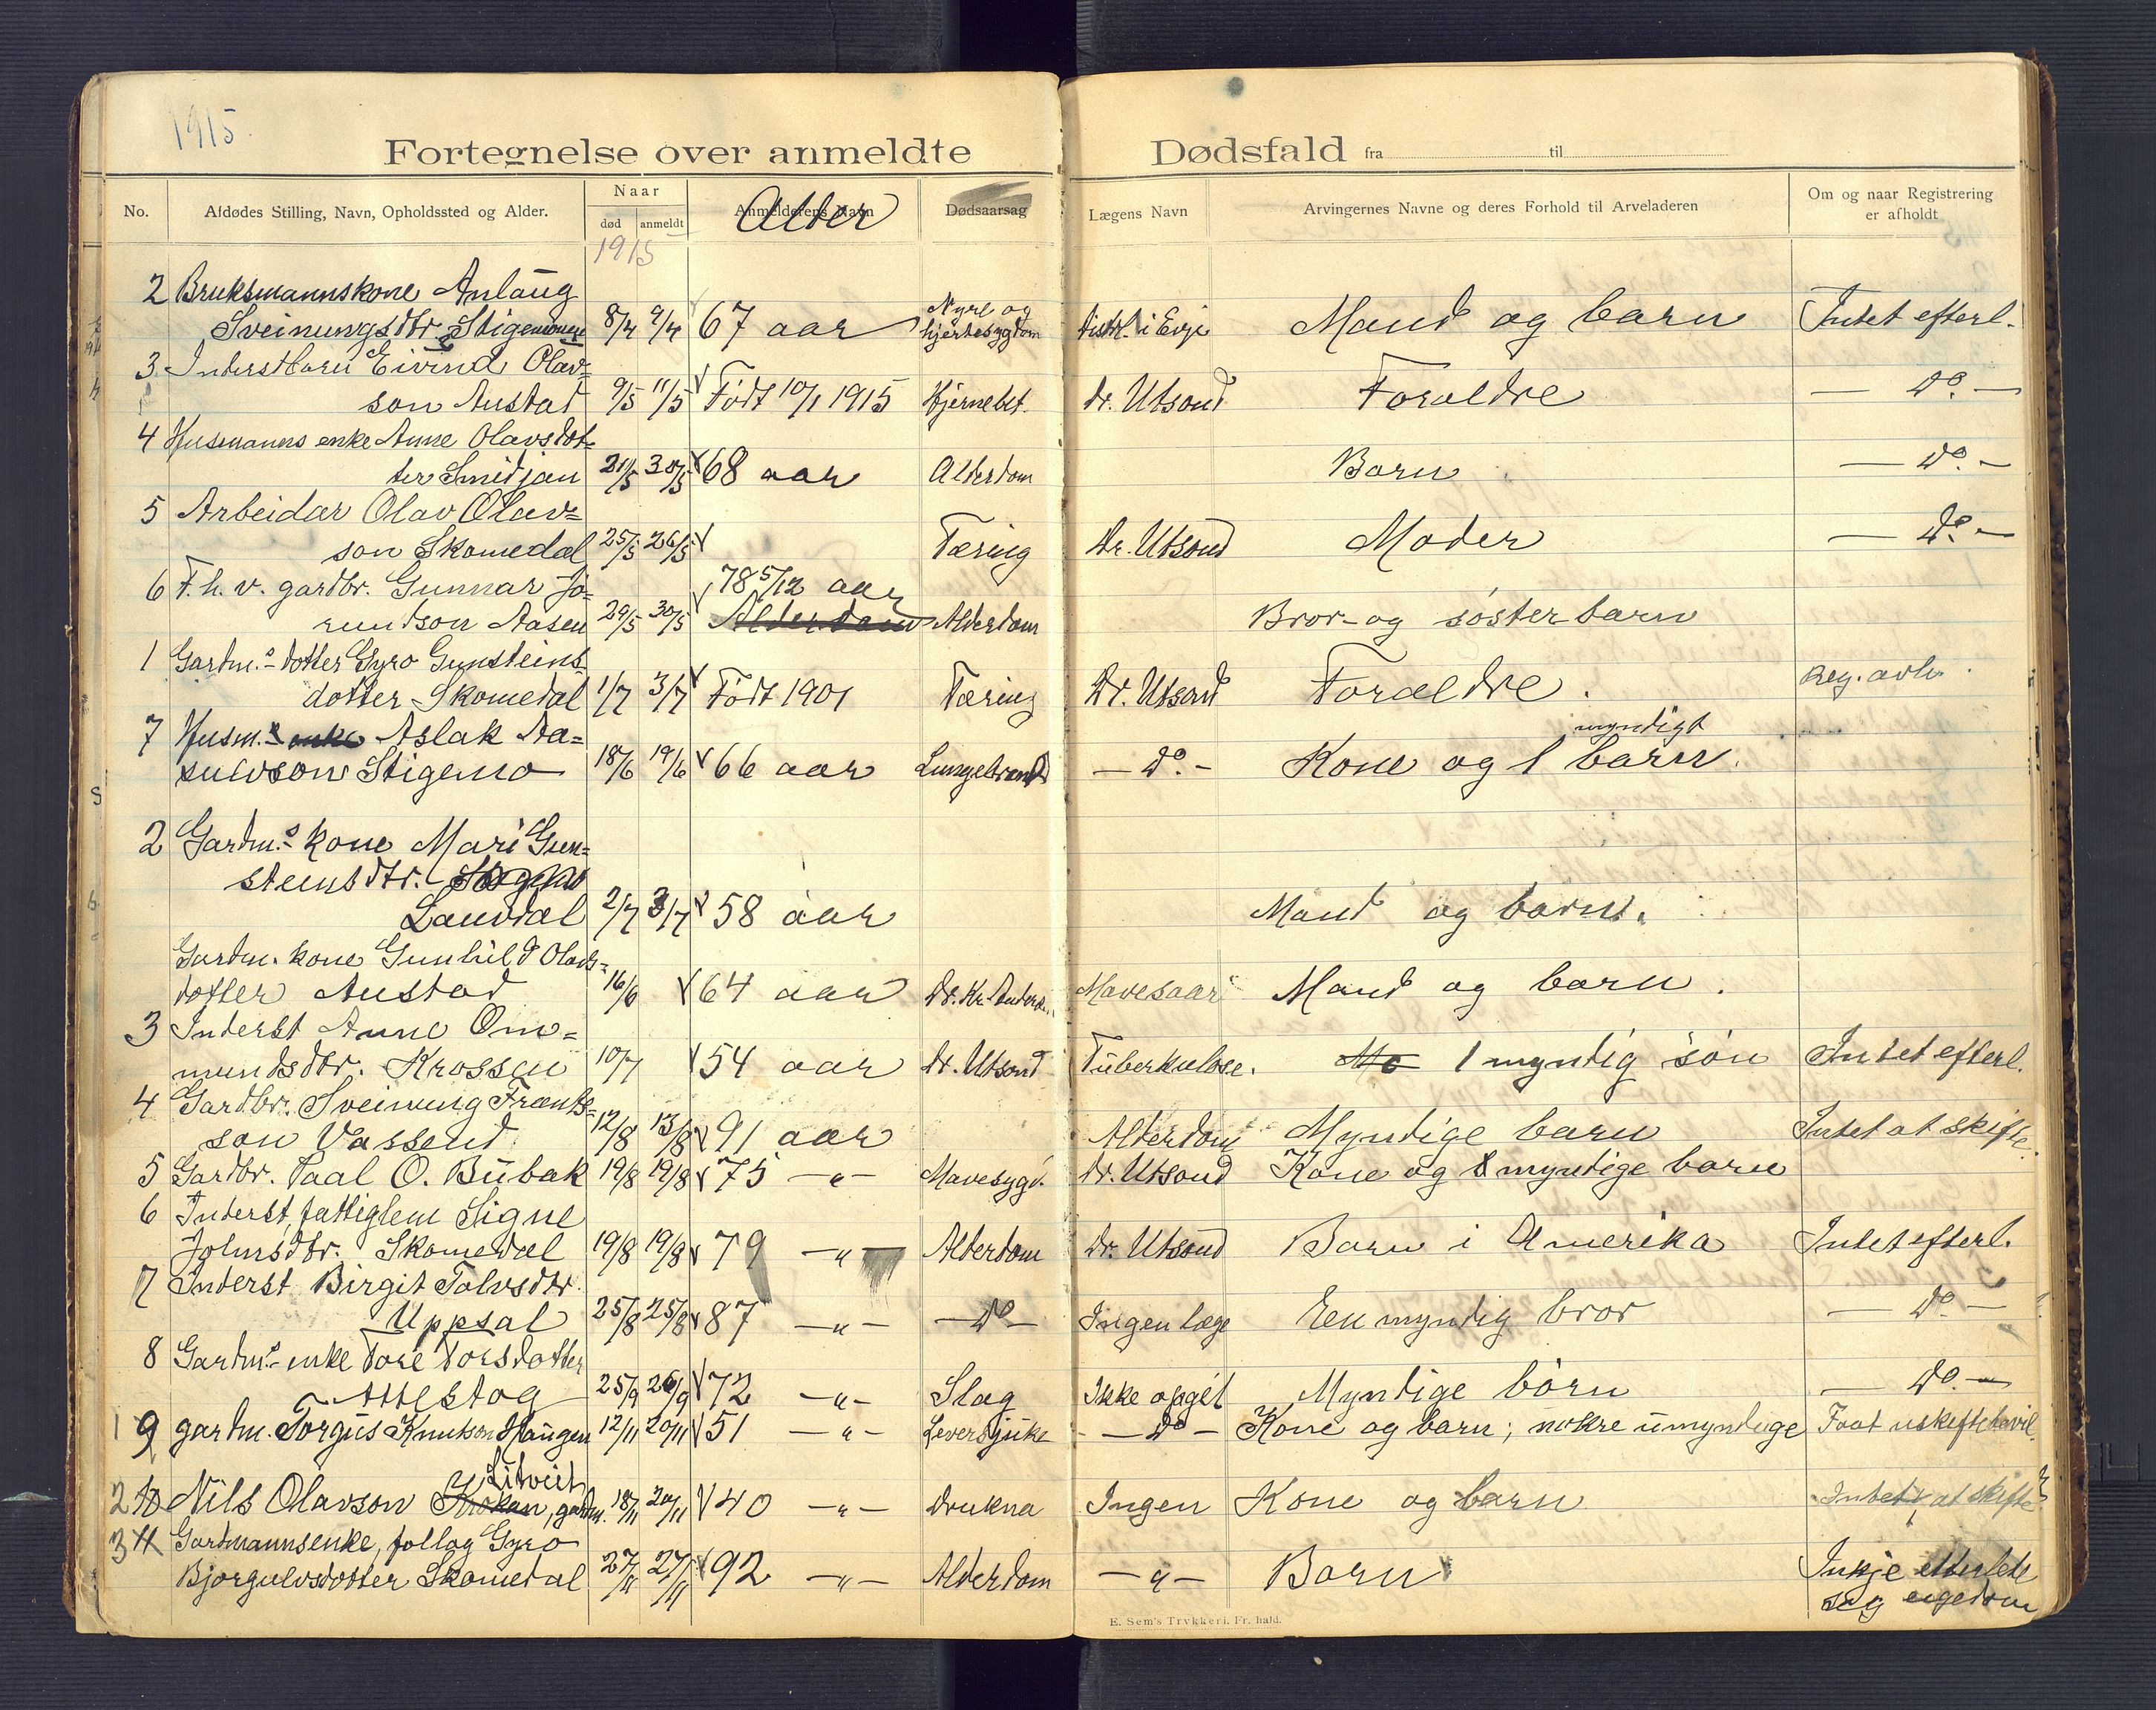 1915.
Fortegnelse over anmeldte Dødsfald fra til
No. Afdødes Stilling, Navn, Opholdssted og Alder. Naar død anmeldt Anmelderens Navn Alder Dødsaarsag Lægens Navn Arvingernes Navne og deres Forhold til Arveladeren Om og naar Registrering er afholdt
1915
2 Bruksmannskone Anlaug
Sveinungsdtr. 8/4 9/4 67 aar Nyre og hjertesygdom Distrl. i Evje Mand og barn Intet efterl.
3 Inderstbarn Eivind Olav=
son Austad 9/5 11/5 Födt 10/1 1915 Hjernebet. Dr. Utsond Foraldre — Do. —
4 Husmanns enke Anne Olavsdot=
ter Smidjan 21/5 30/5 68 aar Alderdom Barn — Do. —
5 Arbeidar Olav Olav=
son Skomedal 25/5 26/5 Tæring Dr. Utsond Moder — Do. —
6 F.h.v. gardbr. Gunnar Jö= 78 5/12 aar
rundson Aasen 29/5 30/5 Alderdom Alderdom Bror- og söster barn
1 Gardm.s dotter Gyro Gunsteins=
dotter Skomedal 1/7 3/7 Födt 1901 Tæring Dr. Utsond Forældre. Reg. avh.
7 Husm.s enke Aslak Aa= myndigt
sulvson Stigemo 18/6 19/6 66 aar Lungebrand — Do. — Kone og 1 barn.
2 Gardm.s kone Mari Gun=
steinsdtr.
Lauvdal 2/7 3/7 58 aar Mand og barn.
Gardm. kone Gunhild Olavs=
dotter Austad 16/6 64 aar Dr. Kr. Anders. Mavesaar Mand og barn.
3 Inderst Anne Om=
mundsdtr. Krossen 10/7 54 aar Dr. Utsond Tuberkulose. Mo 1 myndig sön Intet efterl.
4 Gardbr. Sveinung Frants=
son Vassend 12/8 13/8 91 aar Alderdom Myndige barn Intet at skifte.
5 Gardbr. Paal O. Bubak 19/8 19/8 75 —"— Mavesygd. Dr. Utsond Kone og 8 myndige barn
6 Inderst, fattiglem Signe
Johnsdtr. Skomedal 19/8 19/8 79 —"— Alderdom Dr. Utsond Barn i Amerika Intet efterl.
7 Inderst Birgit Tolvsdtr.
Uppsal 25/8 25/8 87 —"— — Do — Ingen læge Een myndig bror — Do —
8 Gardm.s enke Tore Torsdotter
Attestog 25/9 26/9 72 —"— Slag Ikke opgét Myndige börn — Do. —
1 9 gardm. Torgus Knutson Haugen 12/11 20/11 51 —"— Leversjuke — Do — Kone og barn; nokre umyndige Faat uskiftebevil.
Litveit
2 10 Nils Olavson Krokan, gardm. 18/11 20/11 40 —"— Drukna Ingen Kone og barn Intet at skifte
3 11 Gardmannsenke, follog Gyro
Bjorgulvsdotter Skomedal 27/11 27/11 92 —"— Alderdom —"— Born Inkje etterlete seg eigedom
E. Sem's Trykkeri. Fr. hald.